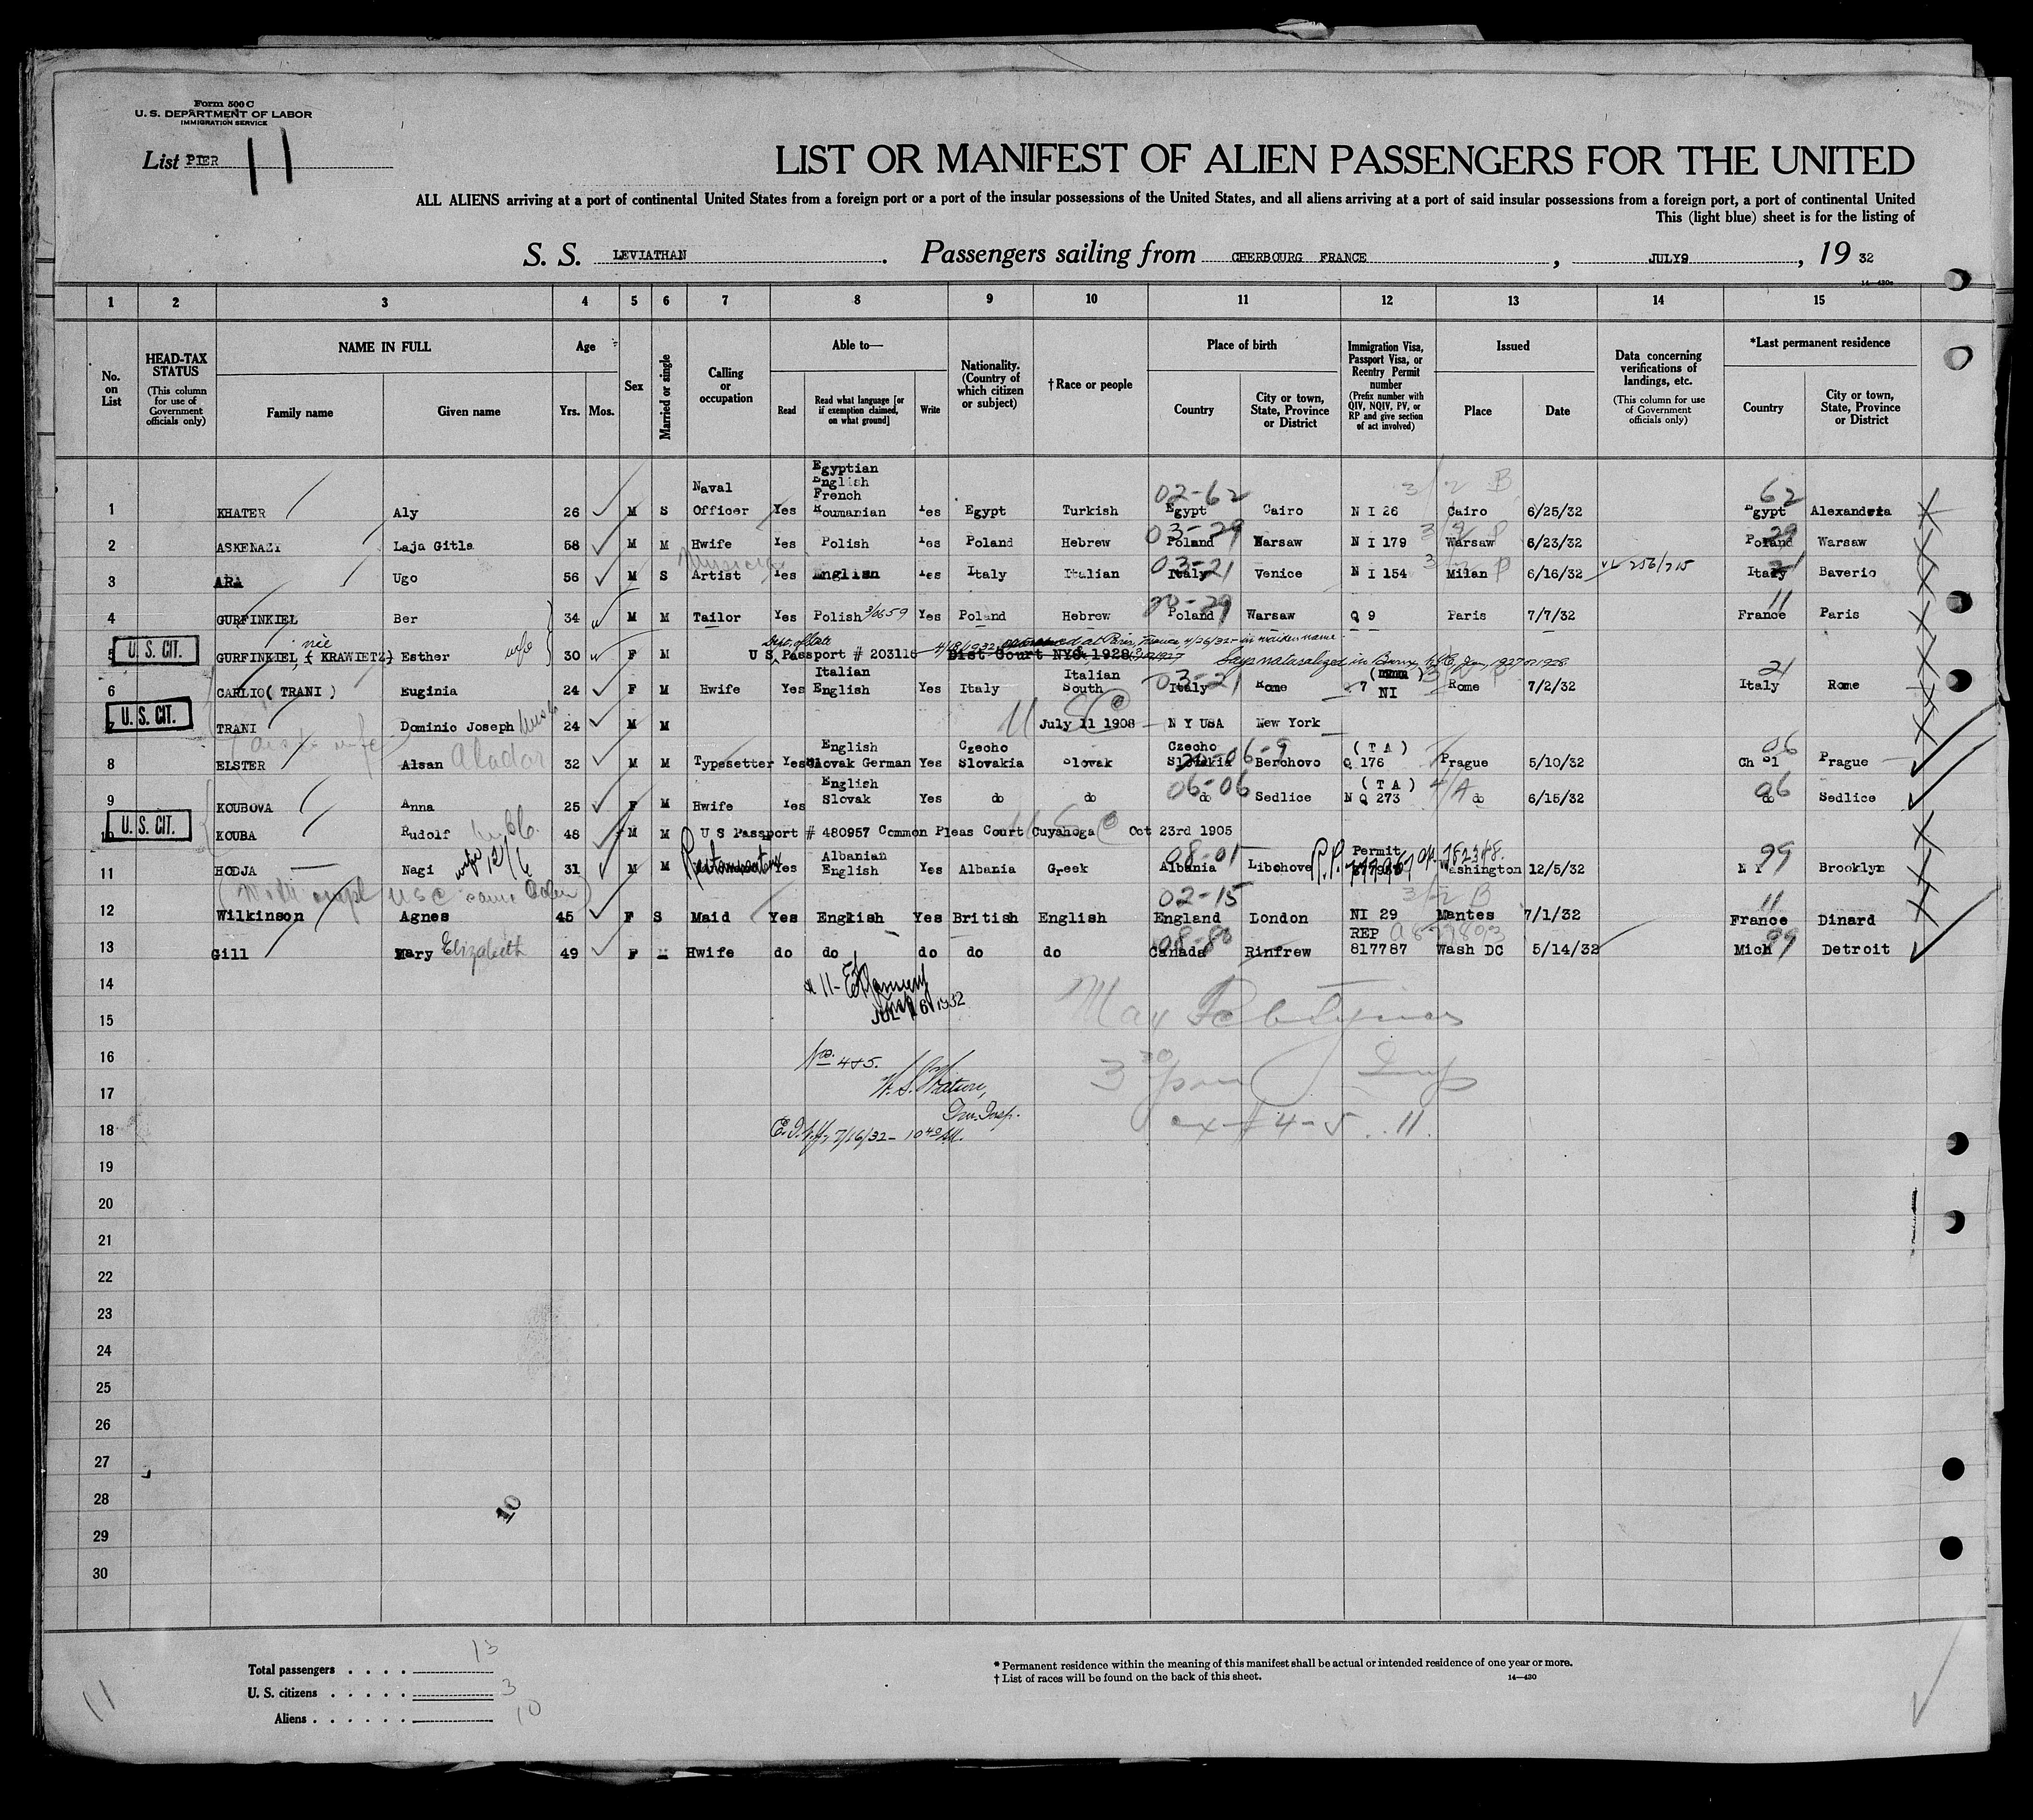 Form 500 C
U. S. DEPARTMENT OF LABOR
IMMIGRATION SERVICE
List PIER 11
LIST OR MANIFEST OF ALIEN PASSENGERS FOR THE UNITED
ALL ALIENS arriving at a port of continental United States from a foreign port or a port of the insular possessions of the United States, and all aliens arriving at a port of said insular possessions from a foreign port, a port of continental United
This (light blue) sheet is for the listing of
S. S. LEVIATHAN. Passengers sailing from CHERBOURG FRANCE, JULY9, 19 32
14—430c
1 2 3 4 5 6 7 8 9 10 11 12 13 14 15
No. on List
HEAD-TAX STATUS (This column for use of Government officials only)
NAME IN FULL Family name Given name
Age Yrs. Mos.
Sex
Married or single
Calling or occupation
Able to— Read Read what language [or if exemption claimed, on what ground] Write
Nationality. (Country of which citizen or subject)
†Race or people
Place of birth Country City or town, State, Province or District
Immigration Visa, Passport Visa, or Reentry Permit number (Prefix number with QIV, NQIV, PV, or RP and give section of act involved)
Issued Place Date
Data concerning verifications of landings, etc. (This column for use of Government officials only)
*Last permanent residence Country City or town, State, Province or District
1 KHATER Aly 26 M S Naval Officer Yes Egyptian English French Roumanian Yes Egypt Turkish 02-62 Egypt Cairo N I 26 3/2 B Cairo 6/25/32 62 Egypt Alexandria
2 ASKENAZI Laja Gitla 58 M M Hwife Yes Polish Yes Poland Hebrew 03-29 Poland Warsaw N I 179 Warsaw 6/23/32 29 Poland Warsaw
3 ARA Ugo 56 M S Musician Artist Yes English Yes Italy Italian 03-21 Italy Venice N I 154 Milan 6/16/32 256/215 21 Italy Baverio
4 GURFINKIEL Ber 34 M M Tailor Yes Polish Yes Poland Hebrew Poland Warsaw Q 9 Paris 7/7/32 11 France Paris
U. S. CIT.
5 GURFINKIEL, née KRAWIETZ) Esther wife 30 F M Dept. of State U S Passport # 203116 4/18/1932 at Paris, France 4/26/32 - in maiden name. Dist Court NYC 1928 Says naturalized in Bronx, NYC, Jan, 1927 or 1928
6 CARLIO( TRANI ) Euginia 24 F M Hwife Yes Italian English Yes Italy Italian South 03-21 Italy Rome 7 NI Rome 7/2/32 21 Italy Rome
U. S. CIT.
7 TRANI Dominic Joseph 24 M M USC July 11 1908 N Y USA New York
8 ELSTER Alsan Aladar 32 M M Typesetter Yes English Slovak German Yes Czecho Slovakia Slovak Czecho Slovakia 06-9 Berehovo ( T A ) Q 176 Prague 5/10/32 06 Ch Sl Prague
9 KOUBOVA Anna 25 F M Hwife Yes English Slovak Yes do do 06-06 do Sedlice ( T A ) N Q 273 4/A do 6/15/32 06 do Sedlice
U. S. CIT.
10 KOUBA Rudolf 48 M M U S Passport # 480957 Common Pleas Court Cuyahoga Oct 23rd 1905
11 HODJA Nagi 31 M M Yes Albanian English Yes Albania Greek 08-01 Albania Libohove R.P. Permit Washington 12/5/32 99 N Y Brooklyn
12 Wilkinson Agnes 45 F S Maid Yes English Yes British English 02-15 England London NI 29 3/2 B Nantes 7/1/32 11 France Dinard
13 Gill Mary Elizabeth 49 F M Hwife do do do do do 08-80 Canada Rinfrew REP 817787 Wash DC 5/14/32 99 Mich Detroit
14
15 JUL 16 1932
16 No. 485.
17
18 E.D. 7/16/32 - 10 AM.
ex # 4-5 . 11.
19
20
21
22
23
24
25
26
27
28
29
30
10
Total passengers . . . . 13
U. S. citizens . . . . . 3
Aliens . . . . . . 10
11
* Permanent residence within the meaning of this manifest shall be actual or intended residence of one year or more.
† List of races will be found on the back of this sheet.
14—430